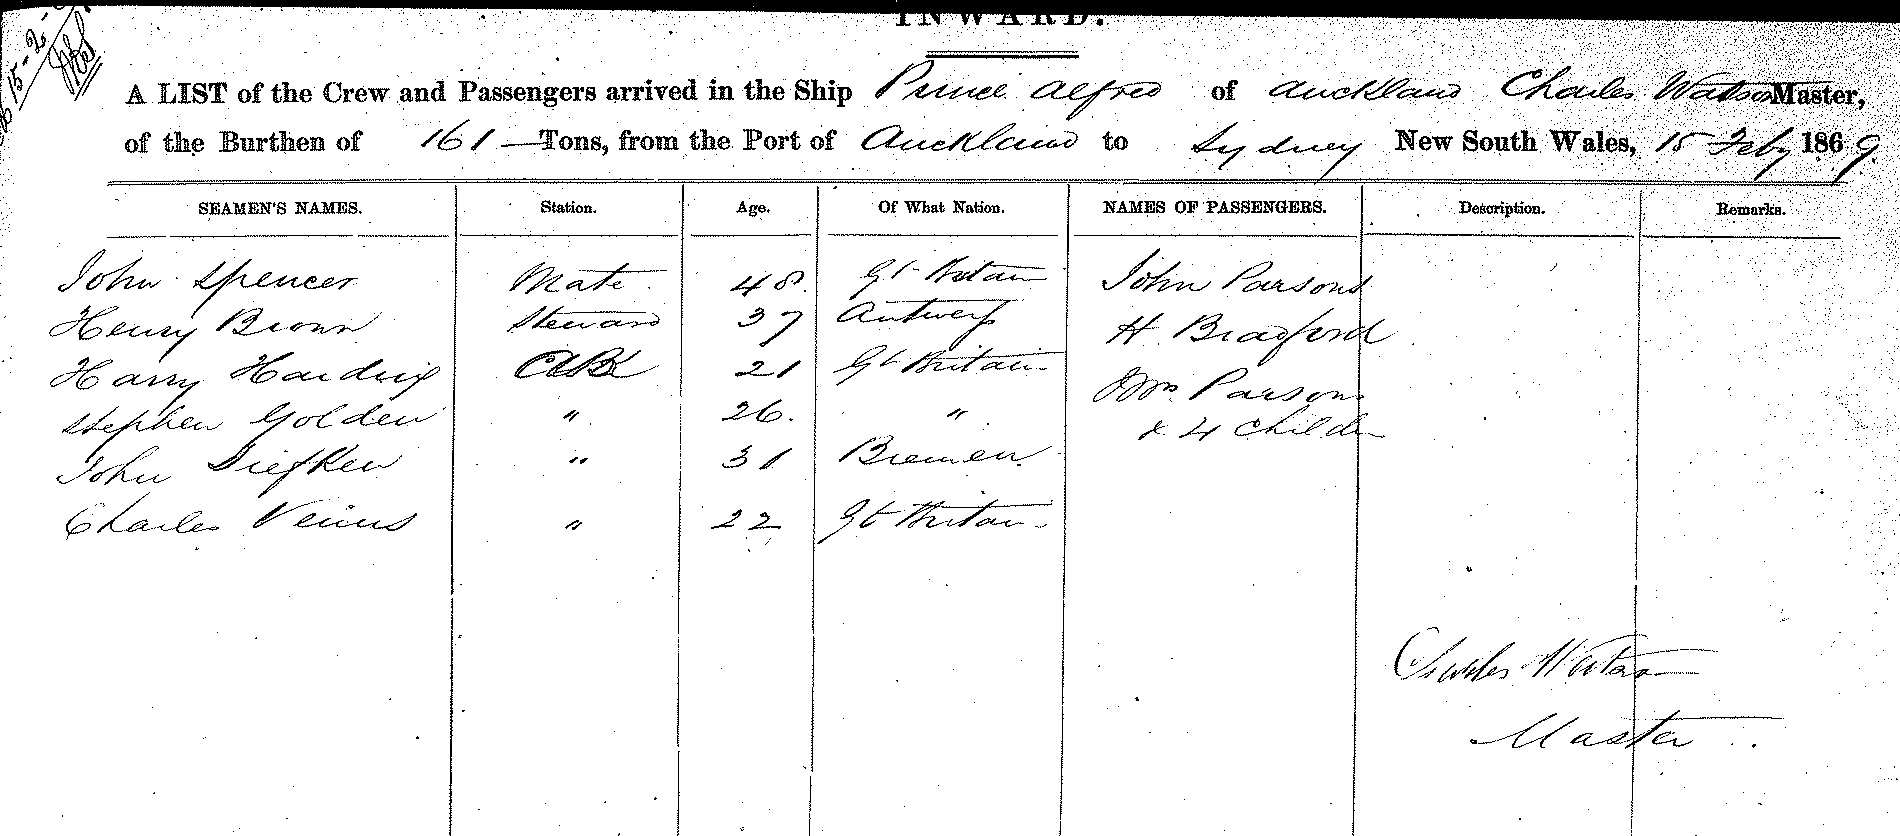 INWARD.
15-2-
A LIST of the Crew and Passengers arrived in the Ship Prince Alfred of Auckland Charles Watson Master,
of the Burthen of 161 — Tons, from the Port of Auckland to Sydney New South Wales, 15 Feby 1869.
SEAMEN'S NAMES. Station. Age. Of What Nation. NAMES OF PASSENGERS. Description. Remarks.
John Spencer Mate 48. Gt Britain John Parsons
Henry Brown Steward 37 Antwerp H Bradford
Harry Harding AB 21 Gt Britain Mrs Parsons
Stephen Golden " 26. " & 4 Childn
John Diefken " 31 Bremen.
Charles Venus " 22 Gt Britain
Charles Watson
Master